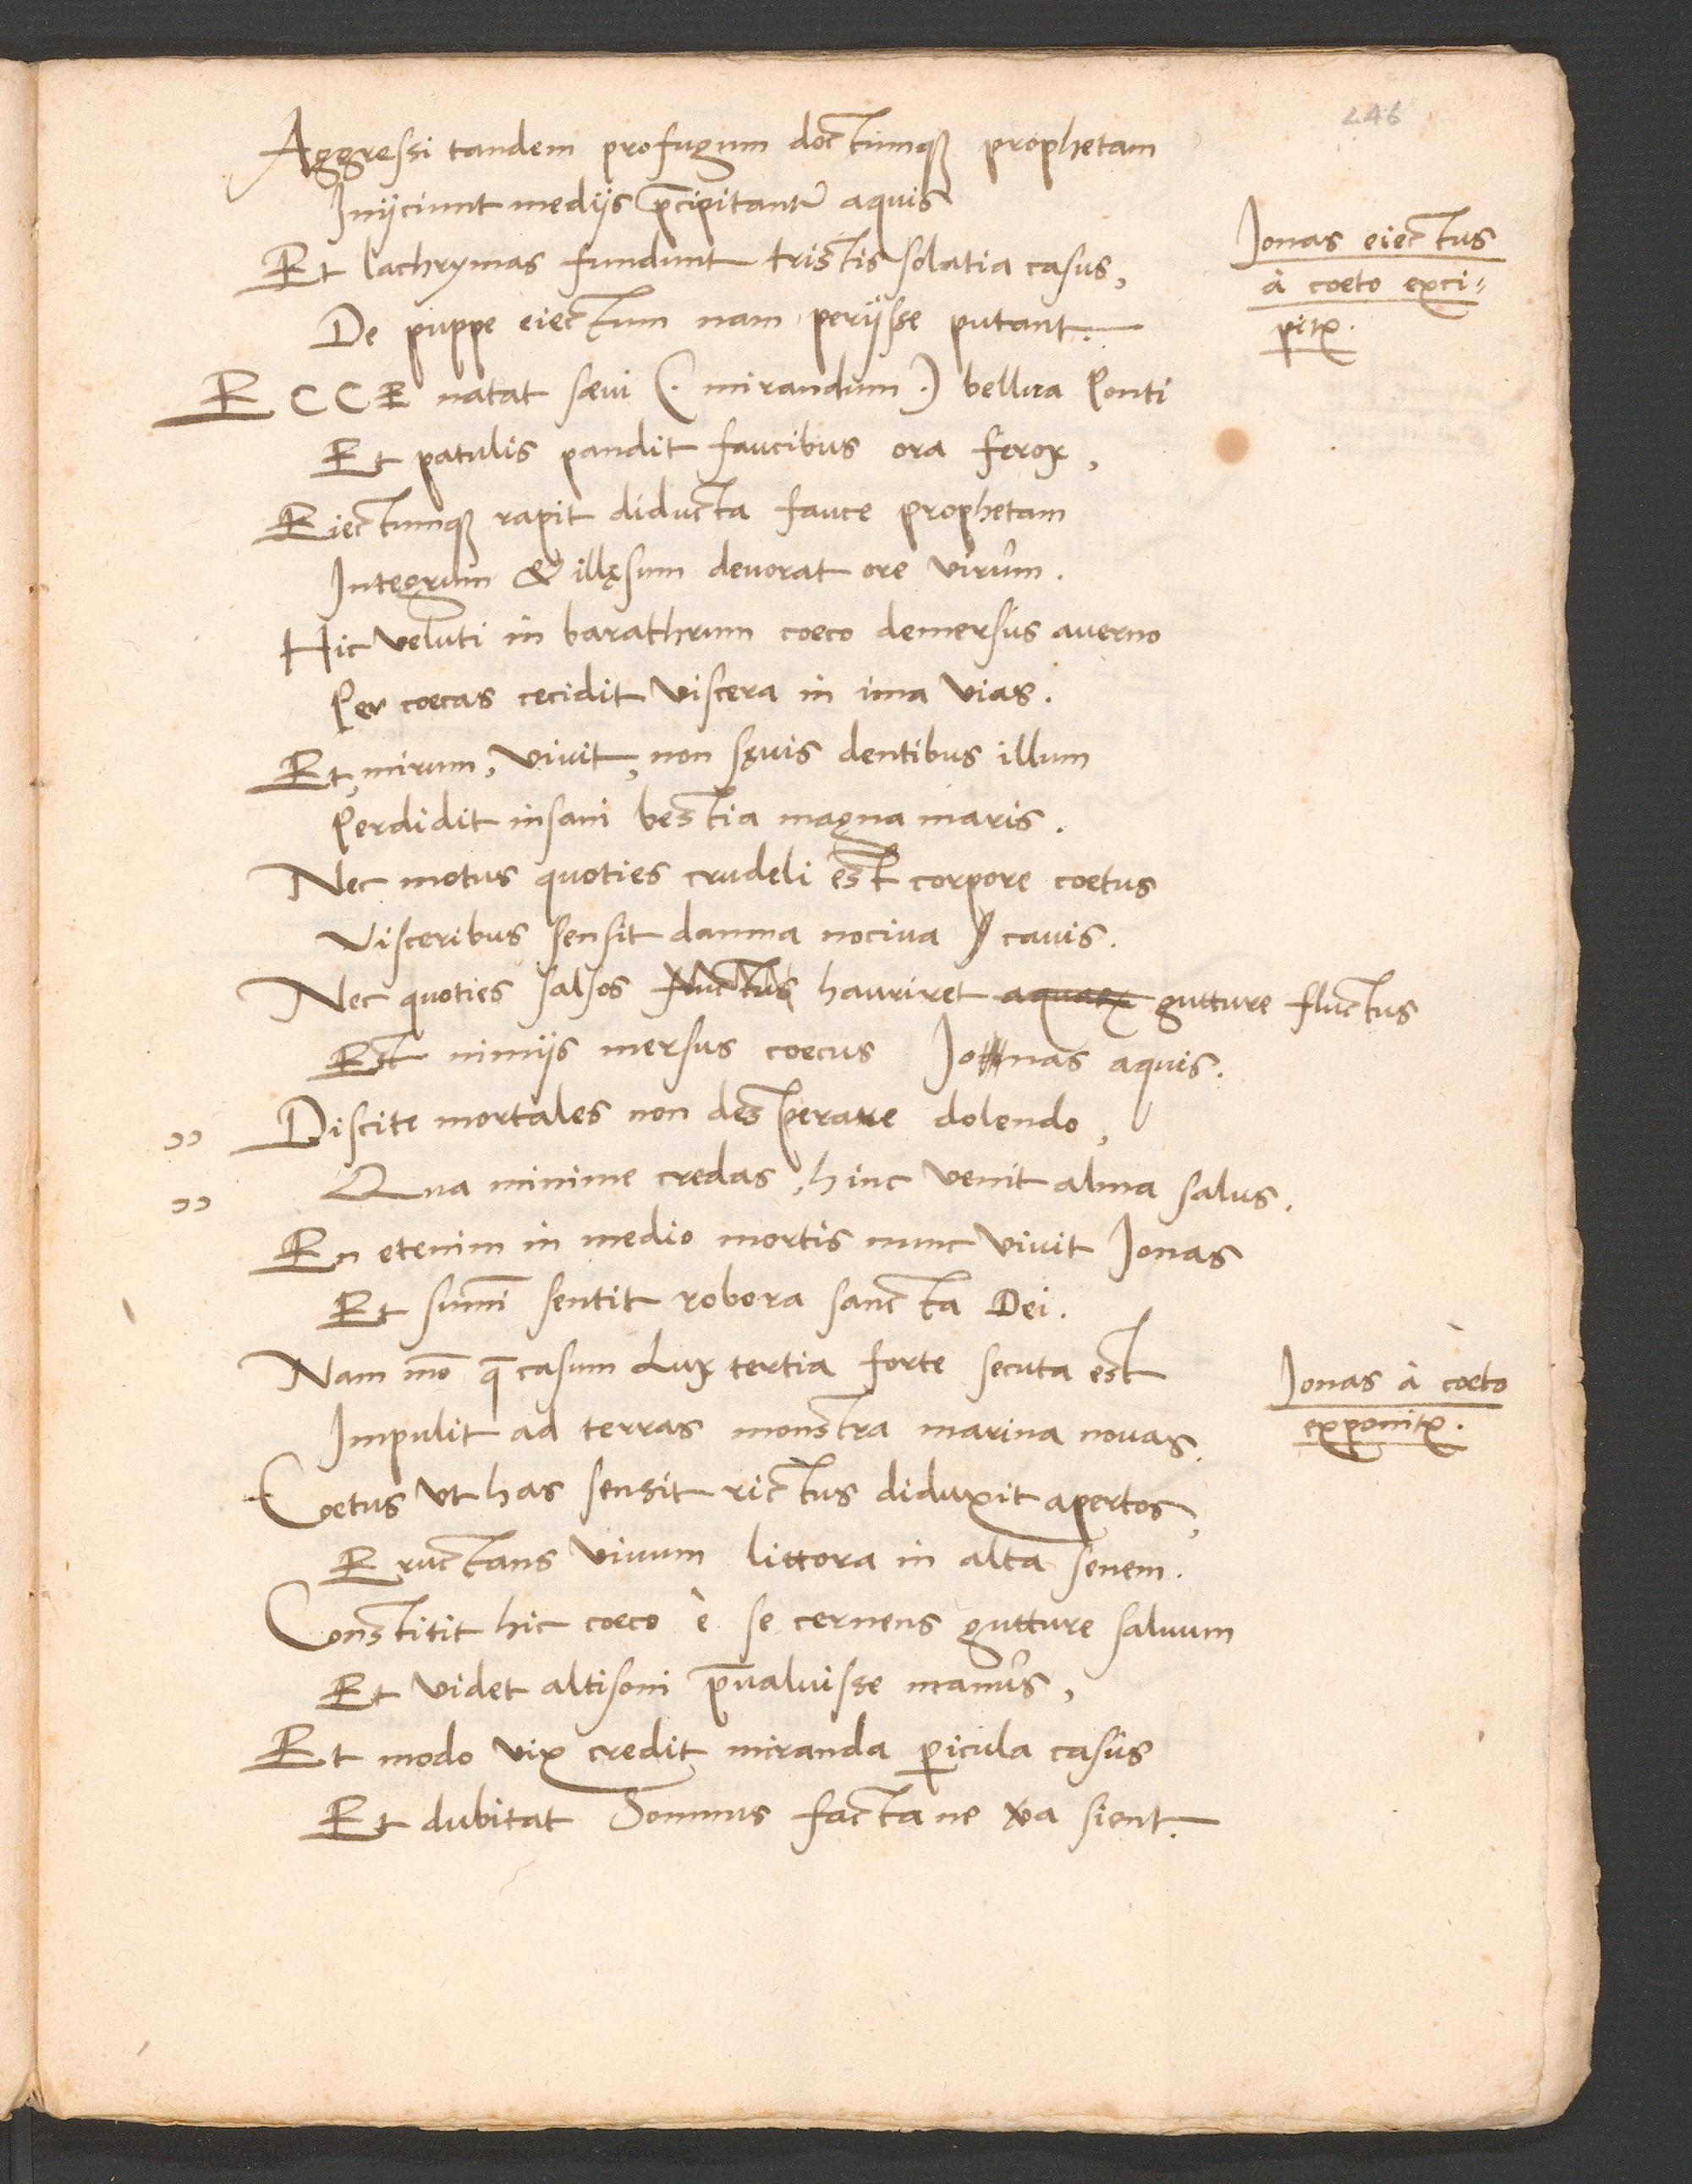 246
Aggressi tandem profugum doctumq₃ prophetam
Inijciunt medijs p̄cipitantr̄ aquis
Et lachrymas fundunt tristis solatia casus,
De puppe eiectum nam perijsse putant.
Jonas eiectus
à coeto exci-
pitr.
ECCE natat sæui (. mirandum .) bellua Ponti
Et patulis pandit faucibus ora ferox,
Eiectumq₃ rapit diducta fauce prophetam
Integrum & illęsum deuorat ore virum.
Hic veluti in barathrum coeco demersus auerno
Per coecas cecidit viscera in ima vias.
Et, mirum, viuit, non sęuis dentibus illum
Perdidit insani bestia magna maris.
Nec motus quoties crudeli est corpore coetus
Visceribus sensit damna nociua cauis.
Nec quoties salsos fluctus hauriret gutture fluctus
Est nimijs mersus coecus Jonas aquis.
" Discite mortales non desperare dolendo,
" Qua minime credas, hinc venit alma salus.
En etenim in medio mortis nunc viuit Jonas
Et sum̄i sentit robora sancta Dei.
Nam mō q̄ casum Lux tertia forte secuta est
Impulit ad terras monstra marina nouas.
Jonas à coeto
exponitr.
Coetus vt has sensit rictus diduxit apertos,
Eructans viuum littora in alta senem.
Constitit hic coeco è se cernens gutture saluum
Et videt altisoni p̄ualuisse manus,
Et modo vix credit miranda ꝑicula casus
Et dubitat Somnus facta ne v̄a sient.